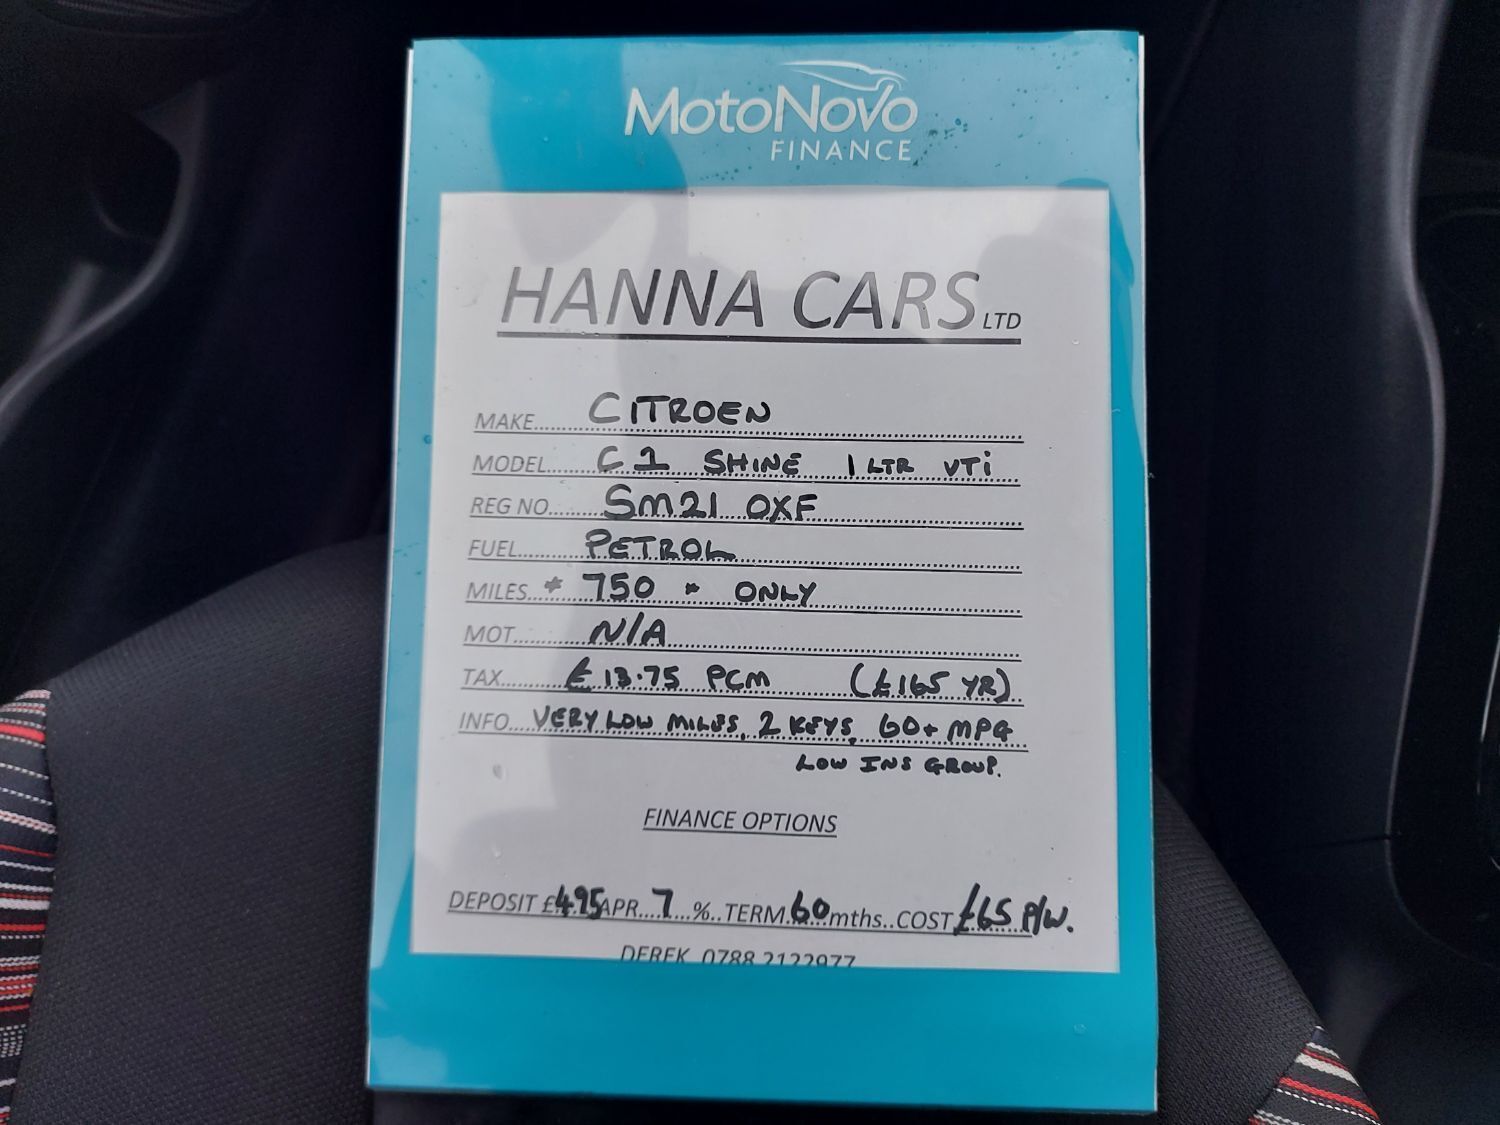 MOTONOVO
FINANCE
HANNA CARS LTD
MAKE..... CITROEN
MODEL..... C1 SHINE 1 LTR VTi
REG NO..... SM21 OXF
FUEL..... PETROL
MILES.. * 750 * ONLY
MOT..... N/A
TAX..... £13.75 PCM (£165 YR)
INFO... VERY LOW MILES, 2 KEYS, 60+ MPG
LOW INS GROUP.
FINANCE OPTIONS
DEPOSIT £495 APR...7...%..TERM.60mths..COST £65 P/W.
DEREK 0788 2122977